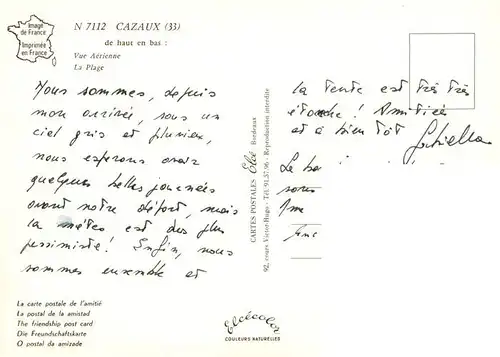 Image
de France
Imprimée
en France
N 7112 CAZAUX (33)
de haut en bas :
Vue Aérienne
La Plage
Nous sommes, depuis
mon arrivée, sous un
ciel gris et pluvieux,
nous esperons avoir
quelques belles journées
avant notre départ, mais
la météo est des plus
pessimiste ! Enfin, nous
sommes ensemble et
La carte postale de l'amitié
La postal de la amistad
The friendship post card
Die Freundschaftskarte
O postal da amizade
CARTES POSTALES Elcé Bordeaux
92, cours Victor-Hugo - Tél. 91.57.06 - Reproduction interdite
la tente est très très
étanche ! Amitiés
et à bien tôt
Elcécolor
COULEURS NATURELLES